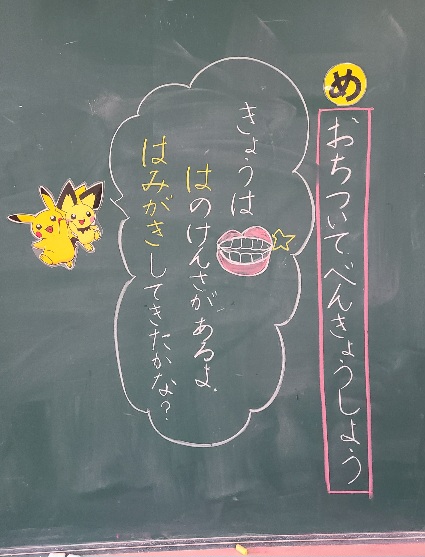 め
おちついてべんきょうしよう
きょうは
はのけんさがあるよ。
はみがきしてきたかな？